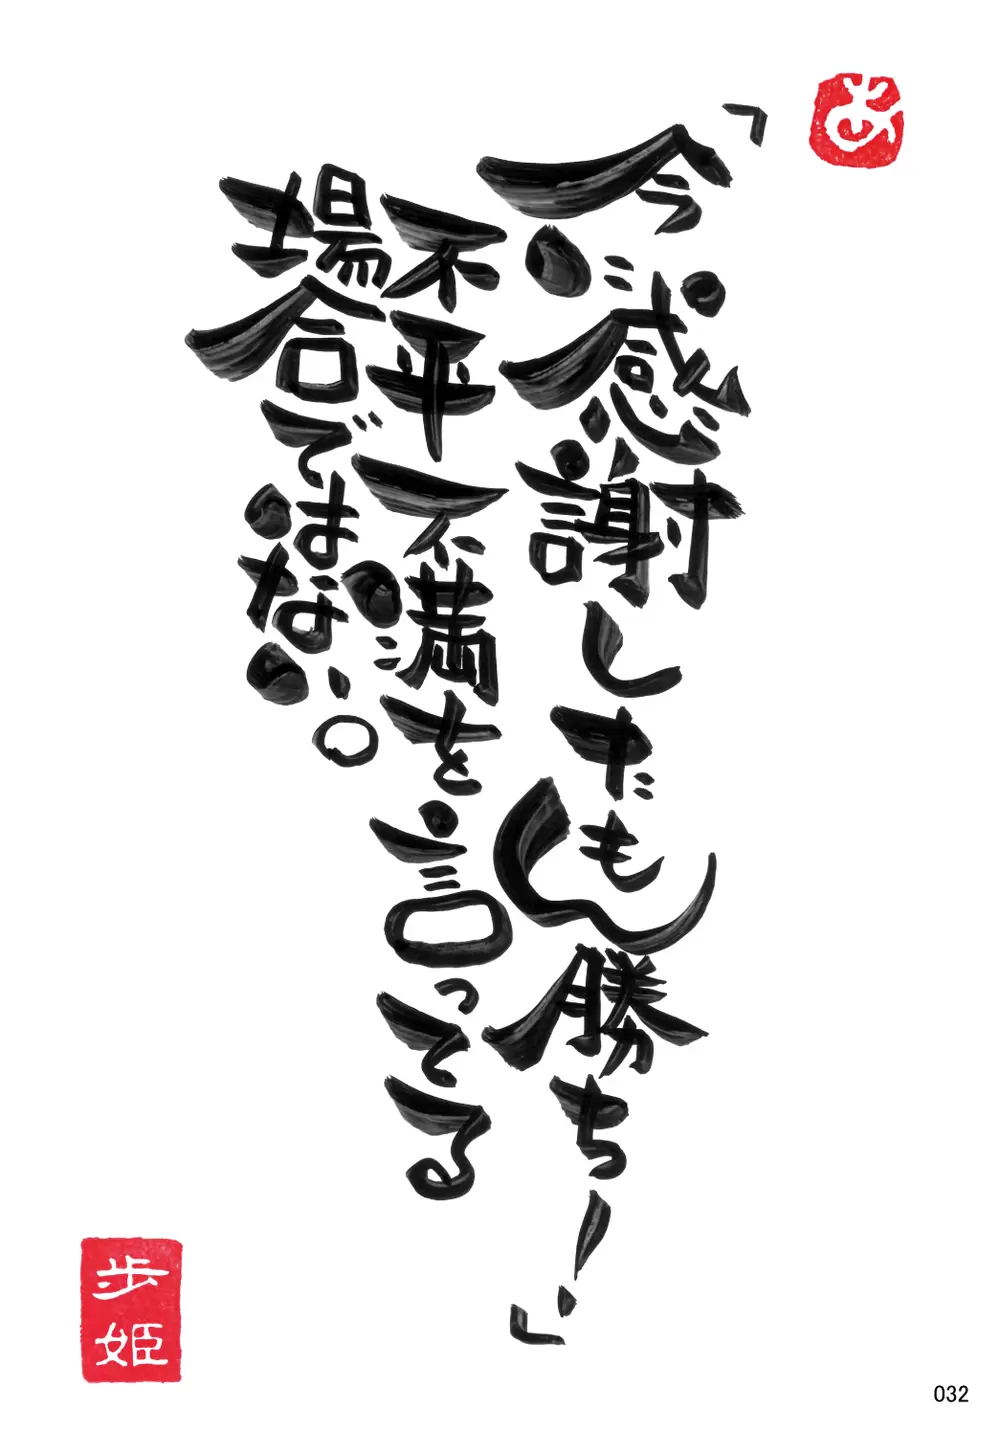 あ
「今に感謝したもん勝ち!」
不平不満を言ってる
場合ではない。
歩姫
032